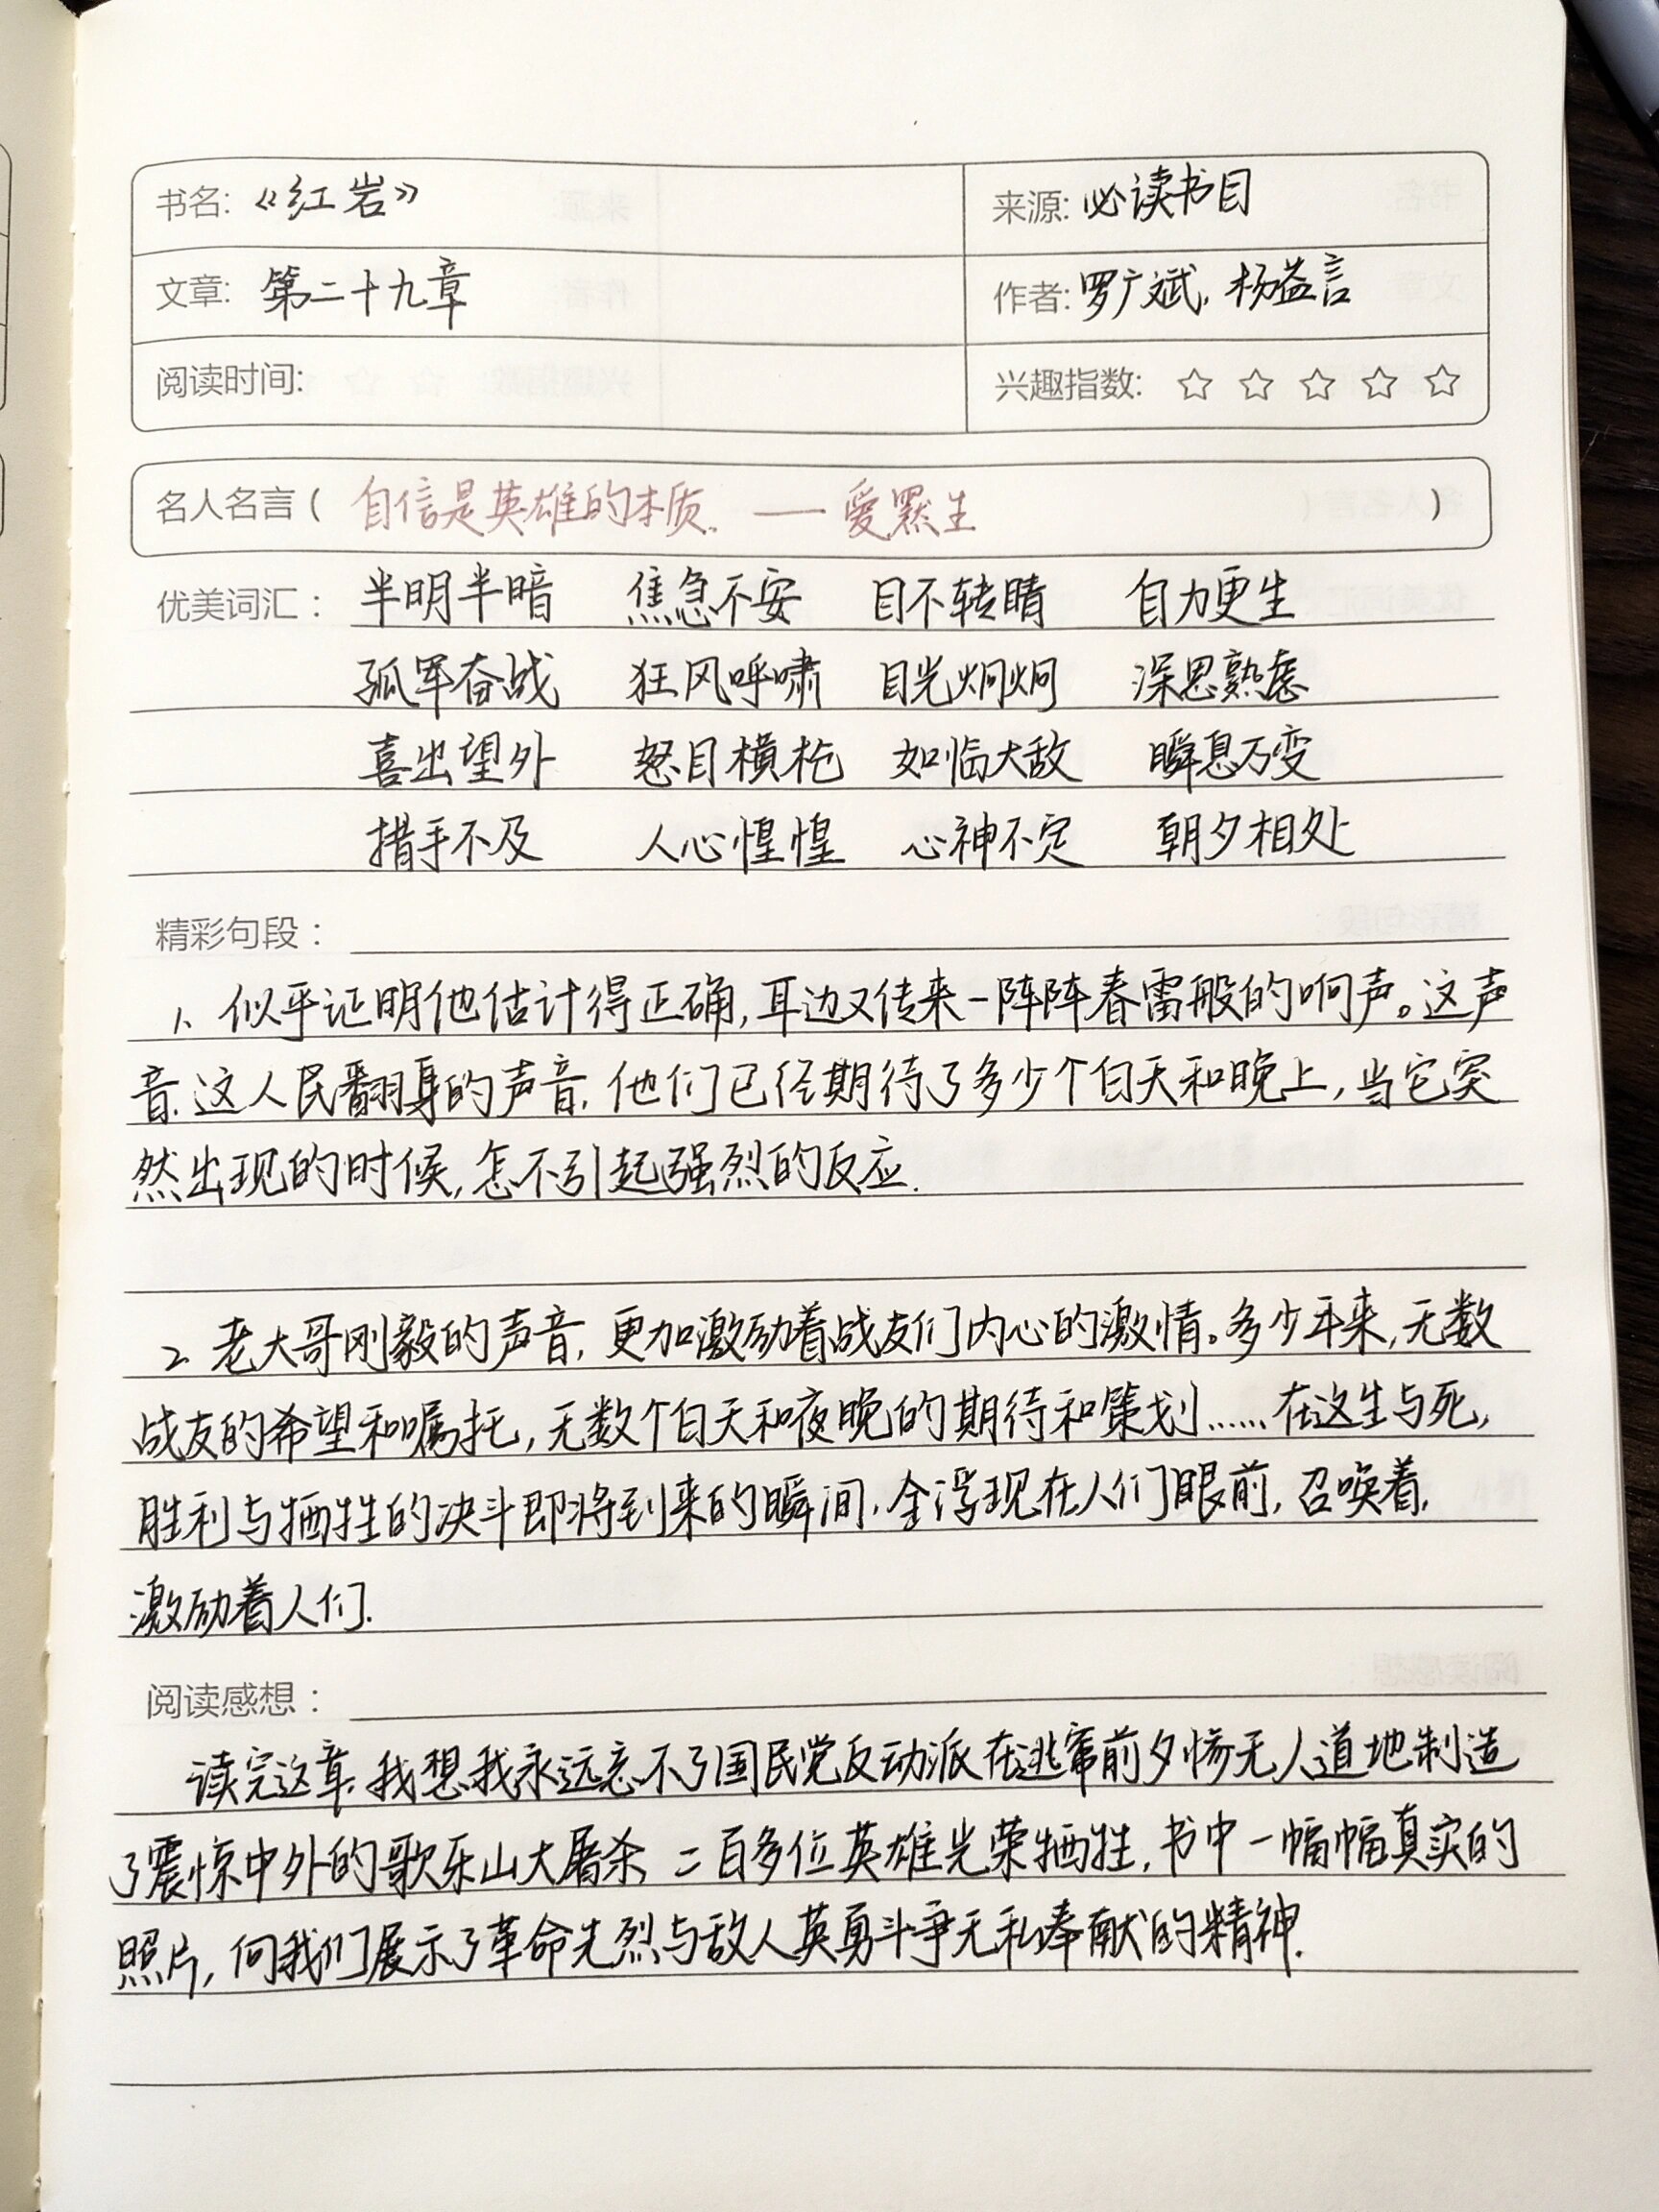 书名: 《红岩》 来源: 必读书目
文章: 第二十九章 作者: 罗广斌, 杨益言
阅读时间: 兴趣指数: ☆ ☆ ☆ ☆ ☆
名人名言( 自信是英雄的本质. —— 爱默生 )
优美词汇: 半明半暗 焦急不安 目不转睛 自力更生
孤军奋战 狂风呼啸 目光炯炯 深思熟虑
喜出望外 怒目横枪 如临大敌 瞬息万变
措手不及 人心惶惶 心神不定 朝夕相处
精彩句段:
1、似乎证明他估计得正确,耳边又传来一阵阵春雷般的响声。这声
音,这人民翻身的声音,他们已经期待了多少个白天和晚上,当它突
然出现的时候,怎不引起强烈的反应.
2、老大哥刚毅的声音,更加激励着战友们内心的激情。多少年来,无数
战友的希望和嘱托,无数个白天和夜晚的期待和策划……在这生与死,
胜利与牺牲的决斗即将到来的瞬间,全浮现在人们眼前,召唤着,
激励着人们.
阅读感想:
读完这章,我想我永远忘不了国民党反动派在逃窜前夕惨无人道地制造
了震惊中外的歌乐山大屠杀,二百多位英雄光荣牺牲,书中一幅幅真实的
照片,向我们展示了革命先烈与敌人英勇斗争无私奉献的精神.